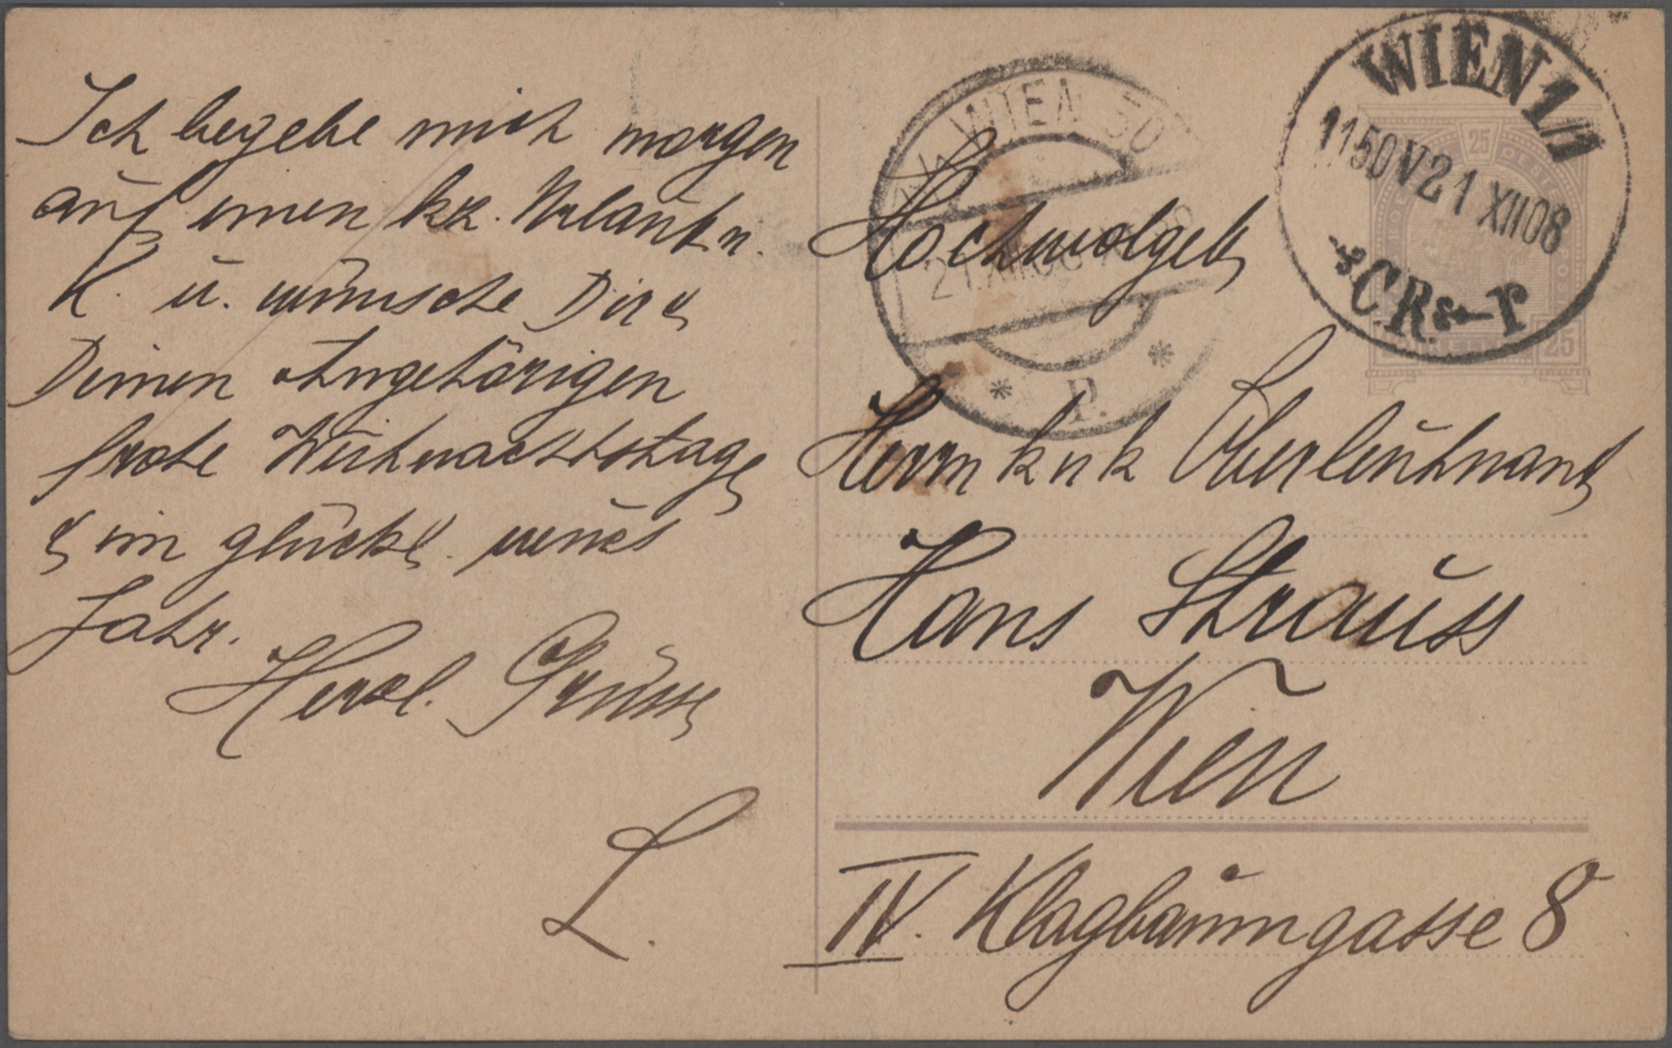 Ich begebe mich morgen
auf einen kz. Urlaub n.
K. u. wünsche Dir &
Deinen Angehörigen
frohe Weihnachtstage
& ein glückl. neues
Jahr.
Herzl. Grüsse
L.
WIEN 50
21.XII.08
P.
WIEN 1/1
1150V 21 XII 08
C.R. & P
25
25
Hochwolgeb
Herrn k u k Oberleutnant
Hans Strauss
Wien
IV. Klagbaumgasse 8